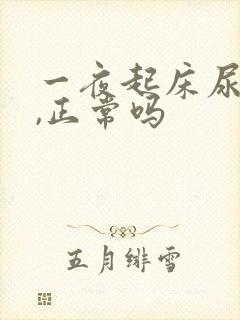 一夜起床尿
,正常吗
五月绯雪